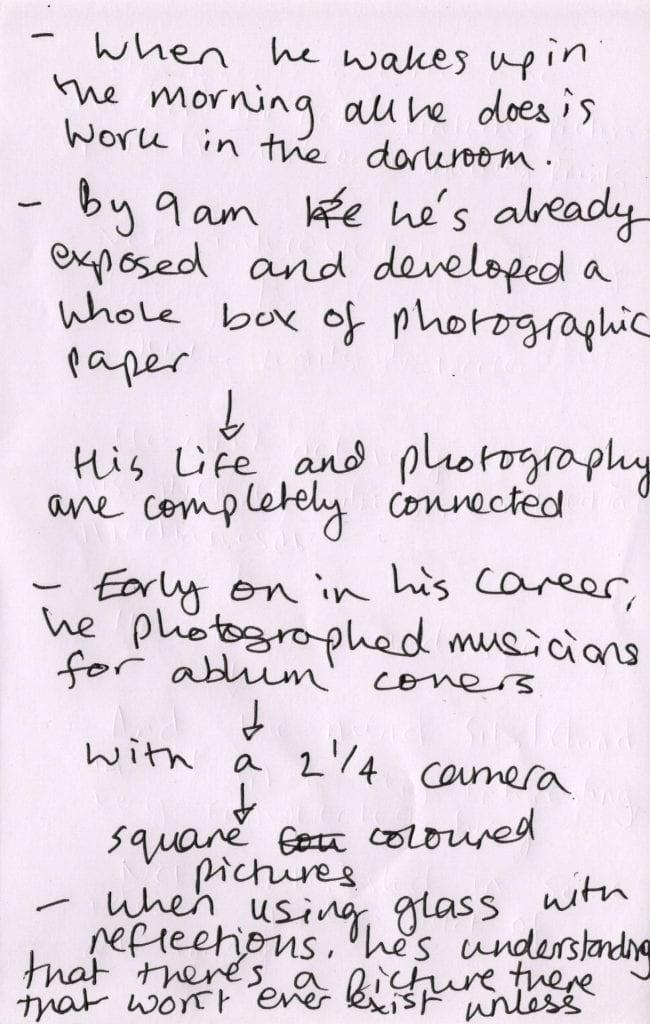 - When he wakes up in
the morning all he does is
work in the darkroom.
- By 9am he's already
exposed and developed a
whole box of photographic
paper
↓
His life and photography
are completely connected
- Early on in his career,
he photographed musicians
for ablum covers
↓
with a 2 1/4 camera
↓
square coloured
pictures
- When using glass with
reflections, he's understanding
that there's a picture there
that won't ever exist unless